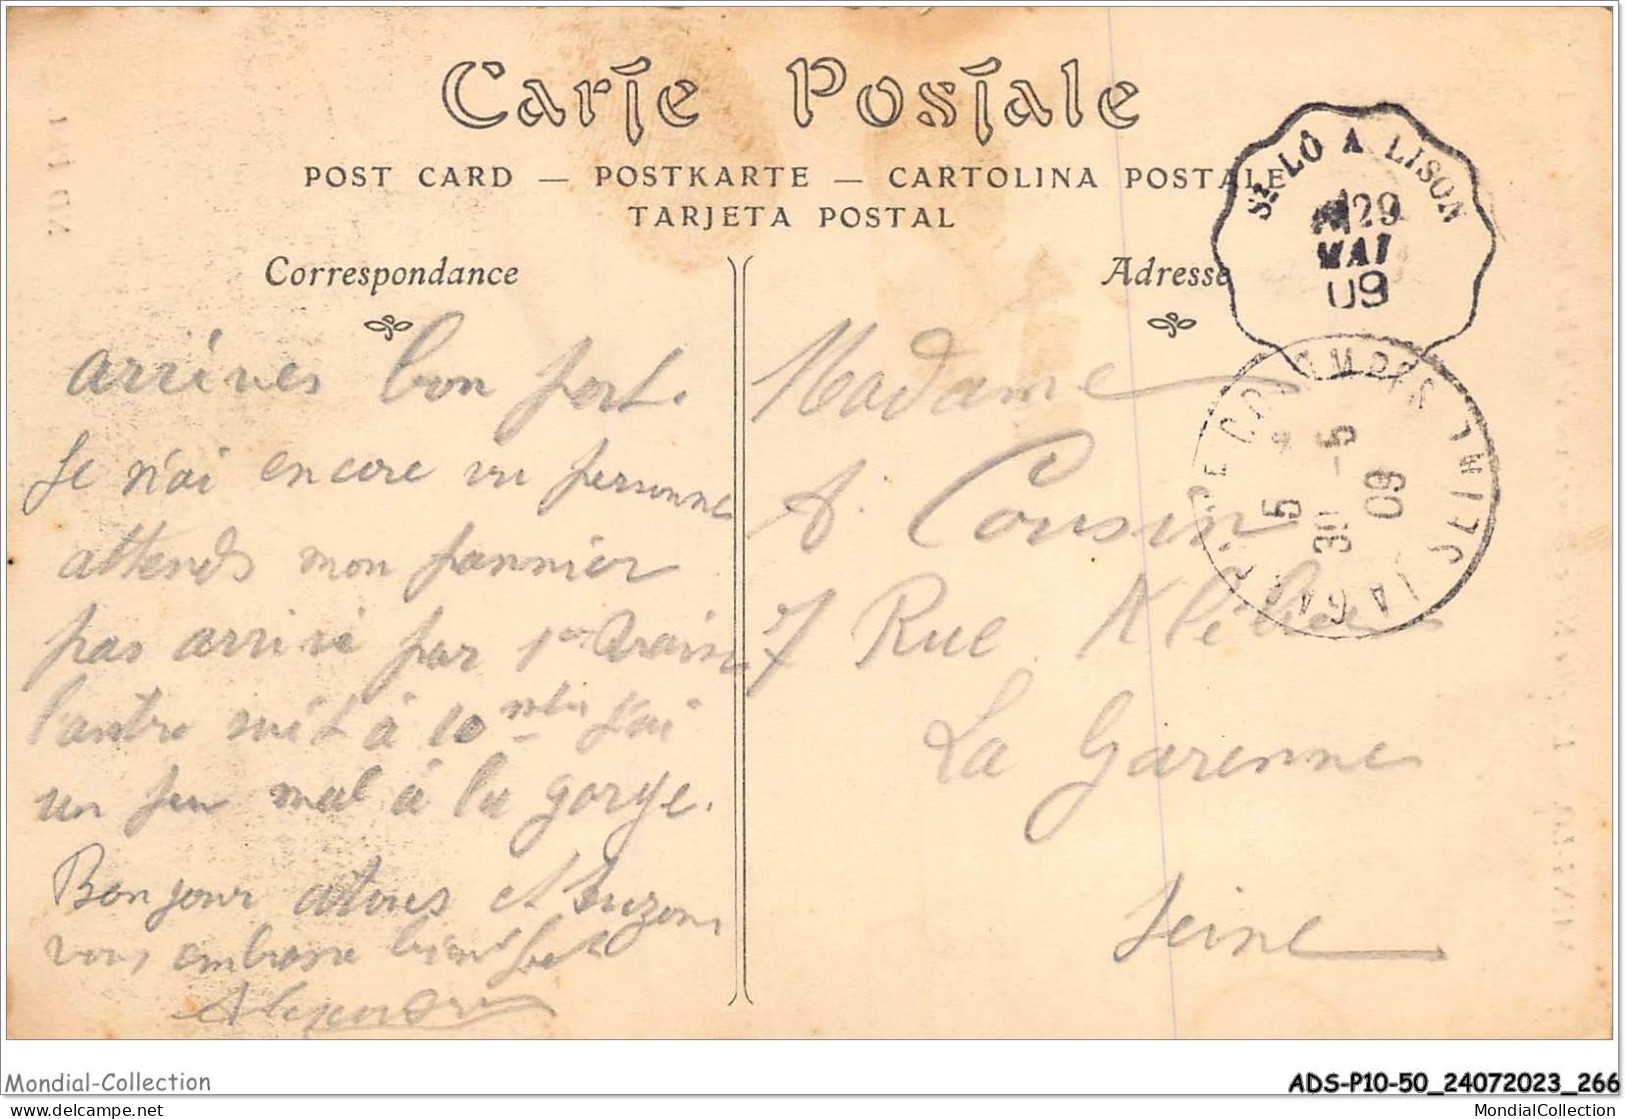 Carte Postale
POST CARD — POSTKARTE — CARTOLINA POSTALE
TARJETA POSTAL
Correspondance
Adresse
ST LÔ A LISON
29
MAI
09
5
30 -5
09
arrivés bon port.
Je n'ai encore vu personne
attends mon pannier
pas arrivé par 1er train
l'autre suit à 10 J'ai
un peu mal à la gorge.
Bonjour atous et Suzon
vous embrasse bien fort
Alexandre
Madame
A. Cousin
7 Rue Kléber
La Garenne
Seine
Mondial-Collection
ADS-P10-50_24072023_266
www.delcampe.net
MondialCollection